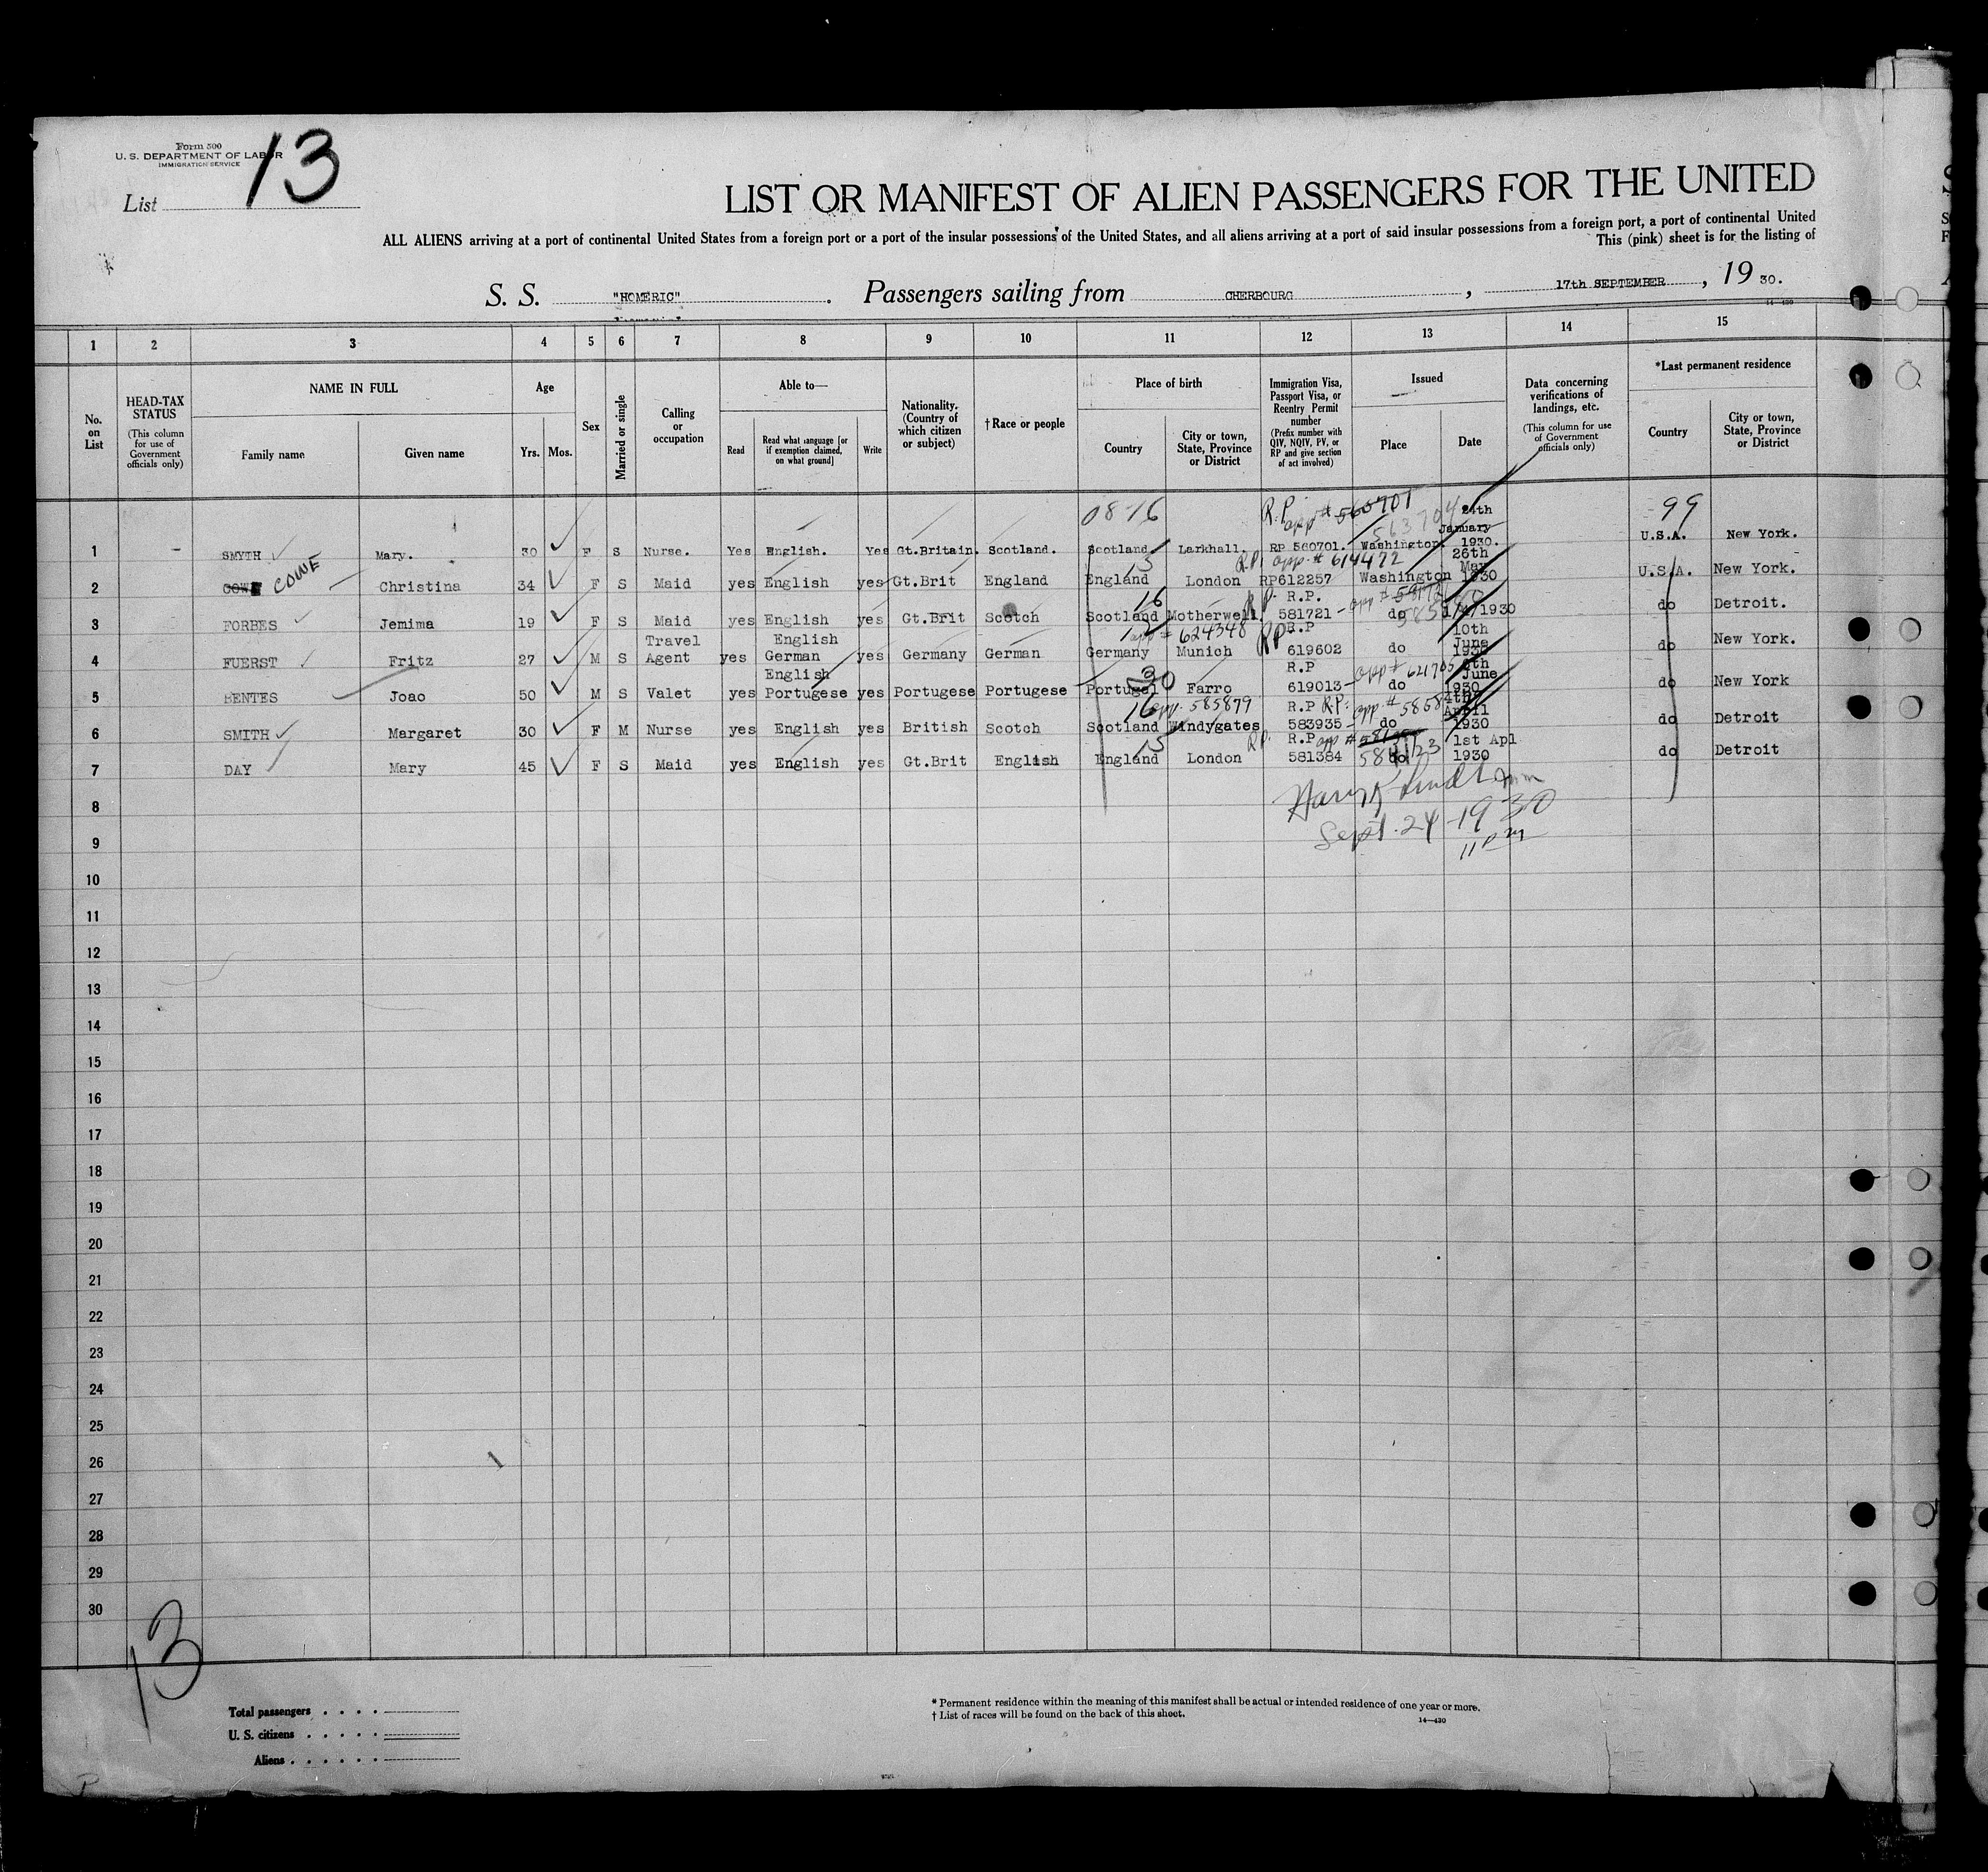 Form 500
U. S. DEPARTMENT OF LABOR
IMMIGRATION SERVICE
List 13
LIST OR MANIFEST OF ALIEN PASSENGERS FOR THE UNITED
ALL ALIENS arriving at a port of continental United States from a foreign port or a port of the insular possessions of the United States, and all aliens arriving at a port of said insular possessions from a foreign port, a port of continental United
This (pink) sheet is for the listing of
S. S. "HOMERIC" . Passengers sailing from CHERBOURG , 17th SEPTEMBER , 19 30.
14-430
1 2 3 4 5 6 7 8 9 10 11 12 13 14 15
No. on List
HEAD-TAX STATUS
(This column for use of Government officials only)
NAME IN FULL
Family name Given name
Age
Yrs. Mos.
Sex
Married or single
Calling or occupation
Able to—
Read
Read what language [or if exemption claimed, on what ground]
Write
Nationality. (Country of which citizen or subject)
†Race or people
Place of birth
Country
City or town, State, Province or District
Immigration Visa, Passport Visa, or Reentry Permit number
(Prefix number with QIV, NQIV, PV, or RP and give section of act involved)
Issued
Place Date
Data concerning verifications of landings, etc.
(This column for use of Government officials only)
*Last permanent residence
Country
City or town, State, Province or District
08-16 R.P. app # 565701 563704 24th 99
January
1 SMYTH Mary. 30 F S Nurse. Yes English. Yes Gt.Britain. Scotland. Scotland Larkhall. RP 560701. Washington. 1930. U.S.A. New York.
15 R.P. app. # 614472 26th
May
2 COWE Christina 34 F S Maid yes English yes Gt.Brit England England London RP612257 Washington 1930 U.S.A. New York.
16 R.P. R.P. app #
3 FORBES Jemima 19 F S Maid yes English yes Gt.Brit Scotch Scotland Motherwell 581721 do 1/4/1930 do Detroit.
Travel English app # 624348 RP R.P 10th
June
4 FUERST Fritz 27 M S Agent yes German yes Germany German Germany Munich 619602 do 1930 do New York.
English 30 R.P app # 621705
June
5 BENTES Joao 50 M S Valet yes Portugese yes Portugese Portugese Portugel Farro 619013 do 1930 do New York
16 app. 585879 R.P R.P. app # 4th
April
6 SMITH Margaret 30 F M Nurse yes English yes British Scotch Scotland Windygates 583935 do 1930 do Detroit
15 R.P. R.P app # 584123 1st Apl
7 DAY Mary 45 F S Maid yes English yes Gt.Brit English England London 581384 do 1930 do Detroit
8
Sept. 24 1930
9
11 PM
10
11
12
13
14
15
16
17
18
19
20
21
22
23
24
25
26
27
28
29
30
13
Total passengers . . . .
U. S. citizens . . . . .
Aliens . . . . . .
* Permanent residence within the meaning of this manifest shall be actual or intended residence of one year or more.
† List of races will be found on the back of this sheet.
14-430